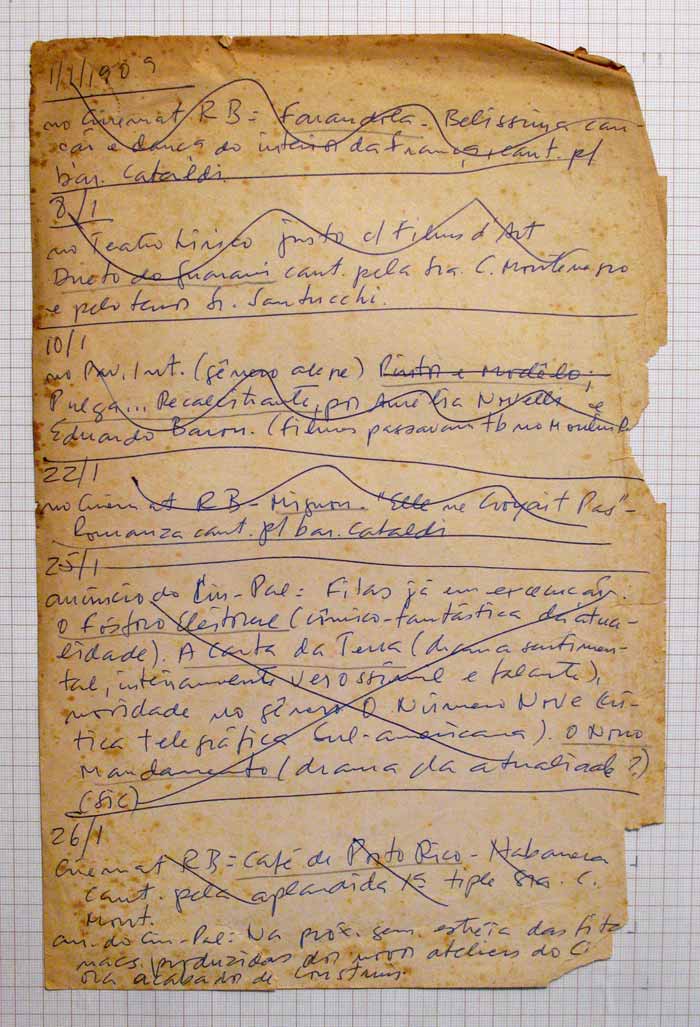 1/1/1909
no Cinemat RB = Farandola - Belissima can-
ção e dança do interior da França, cant. p/
bar. Cataldi.
8/1
no Teatro Lirico junto c/ Films d'Art
Dueto do Guarani cant. pela Sra. C. Montenegro
e pelo tenor Sr. Santucchi.
10/1
no Pav. Int. (gênero alegre) Pintor e modêlo;
Pulga... Recalcitrante, por Amelia Novells e
Eduardo Baron. (filmes passavam tb no
22/1
no Cinemat RB - Mignon. "Elle ne Croyait Pas" -
Romanza cant. p/ bar. Cataldi
25/1
anúncio do Cin-Pal = Fitas já em execução:
O Fósforo Eleitoral (cômico-fantástica da atua-
lidade). A Carta da Terra (drama sentimen-
tal, inteiramente verossímil e falante),
novidade no gênero O Número Nove (crí-
tica telegráfica sul-americana). O Novo
Mandamento (drama da atualidade?)
(sic)
26/1
Cinemat RB = Café de Porto Rico - Habanera
cant. pela aplaudida 1ª tiple Sra. C.
Mont.
an. do Cin-Pal: Na próx. sem. estréia das fitas
nacs. produzidas nos novos ateliers do C
ora acabados de construir.